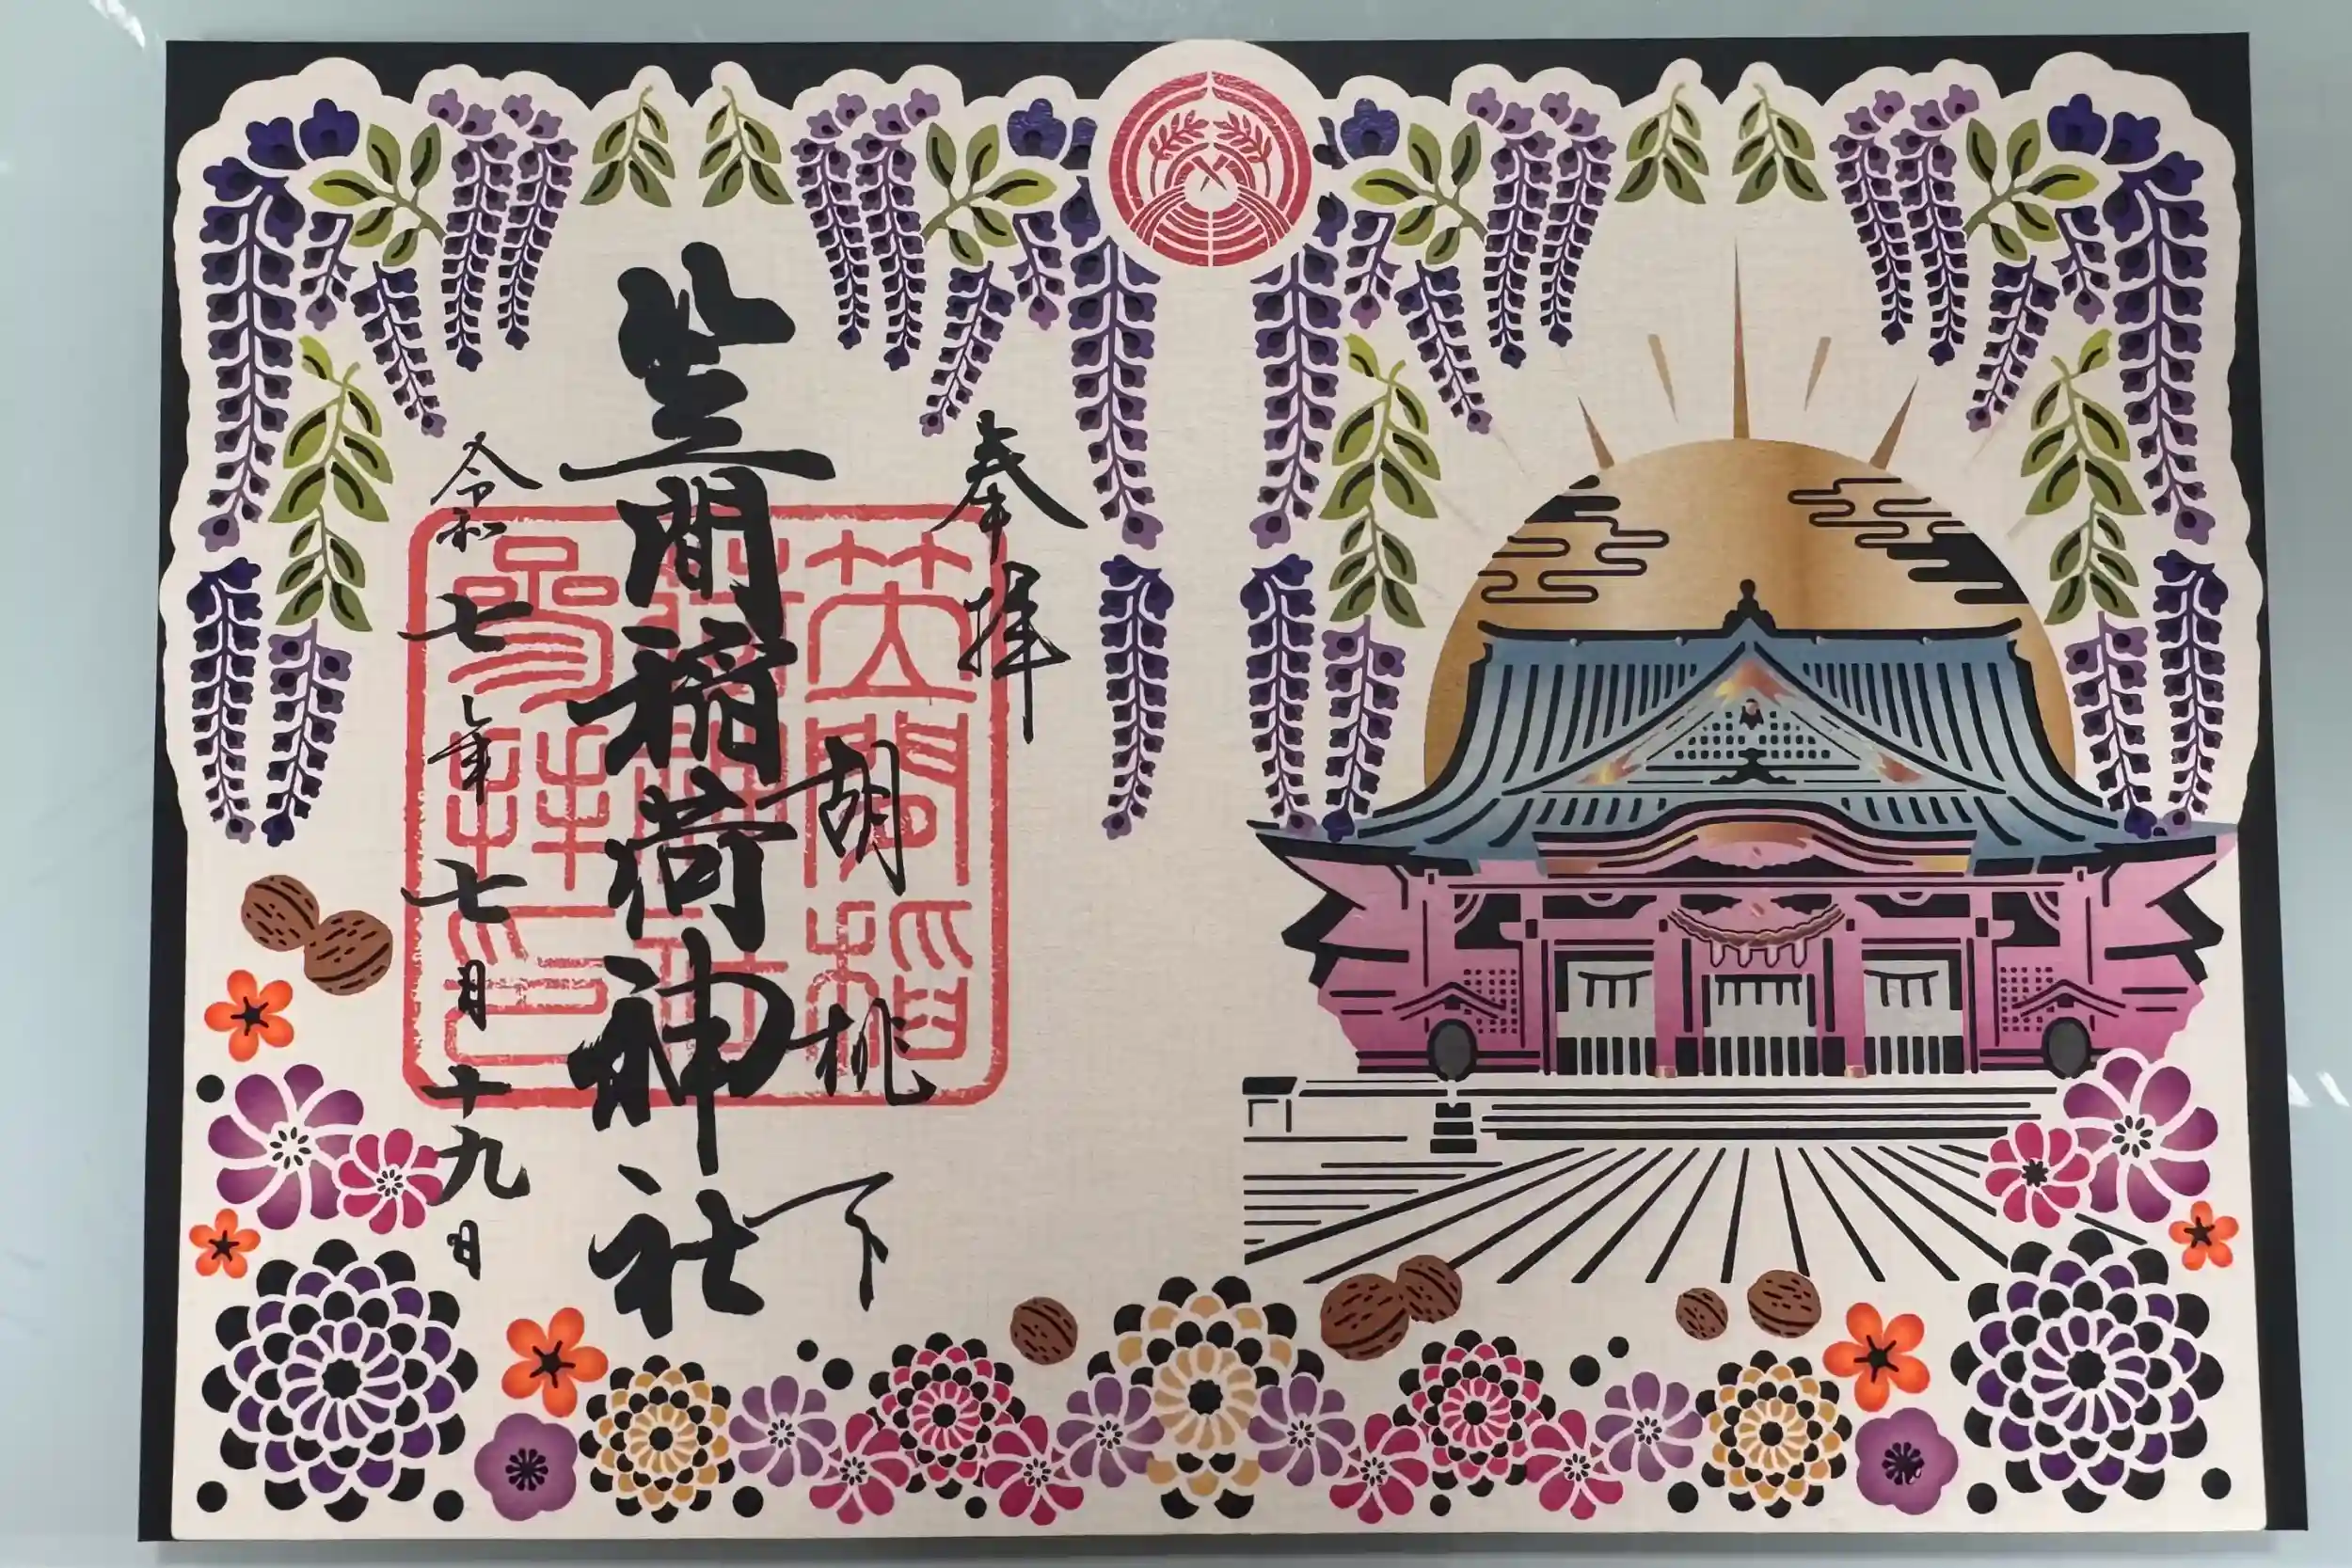 奉拝
胡桃下
笠間稲荷神社
令和七年七月十九日
笠間稲
荷神社
參拜印